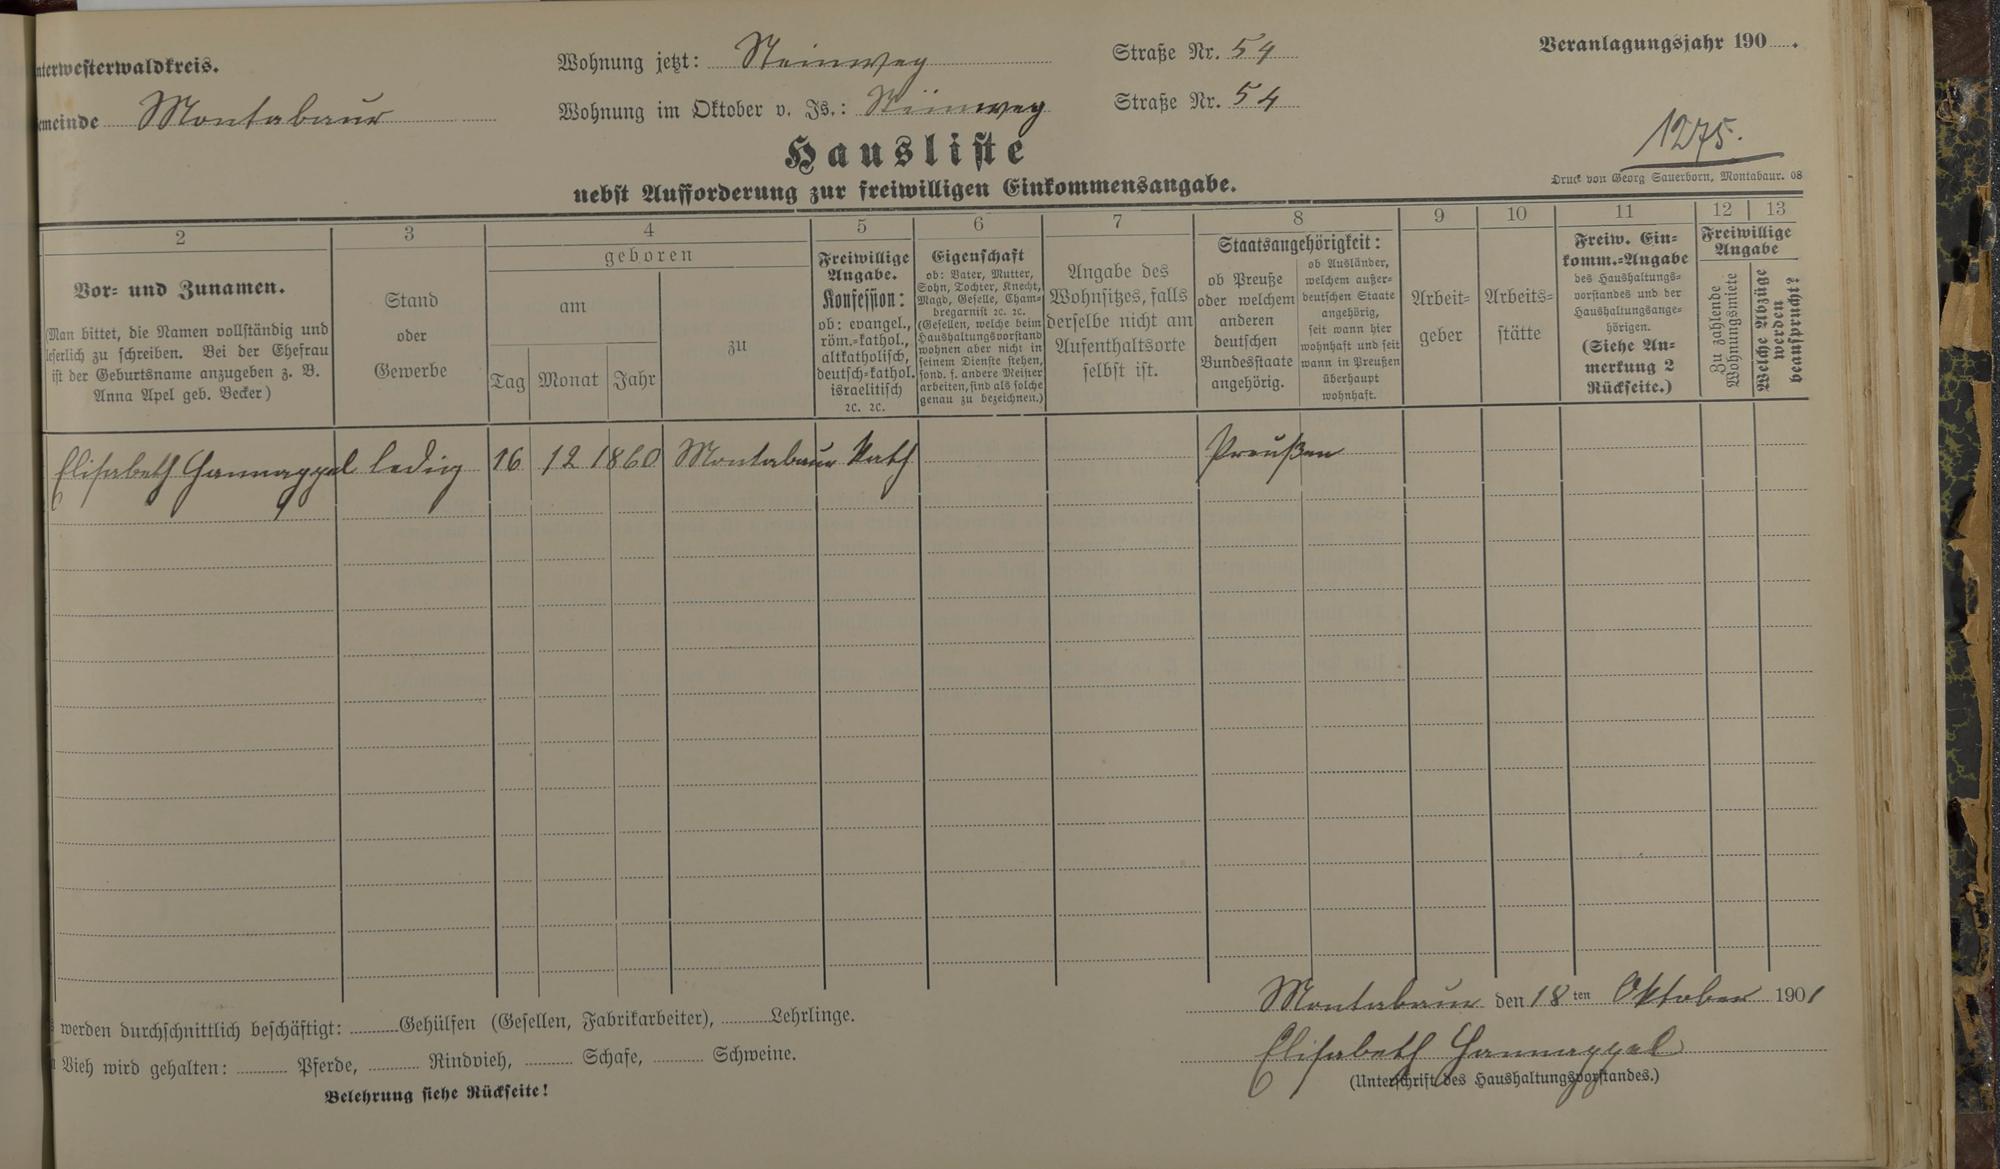 nterwesterwaldkreis.
Wohnung jetzt: Steinweg Straße Nr. 54
Veranlagungsjahr 190 .
emeinde Montabaur
Wohnung im Oktober v. Js.: Steinweg Straße Nr. 54
1275.
Hausliste
nebst Aufforderung zur freiwilligen Einkommensangabe.
Druck von Georg Sauerborn, Montabaur. 08
2
Vor- und Zunamen.
(Man bittet, die Namen vollständig und
leserlich zu schreiben. Bei der Ehefrau
ist der Geburtsname anzugeben z. B.
Anna Apel geb. Becker)
3
Stand
oder
Gewerbe
4
geboren
am
Tag Monat Jahr
zu
5
Freiwillige
Angabe.
Konfession:
ob: evangel.,
röm.-kathol.,
altkatholisch,
deutsch-kathol.
israelitisch
2c. 2c.
6
Eigenschaft
ob: Vater, Mutter,
Sohn, Tochter, Knecht,
Magd, Geselle, Cham-
bregarnist 2c. 2c.
(Gesellen, welche beim
Haushaltungsvorstand
wohnen aber nicht in
seinem Dienste stehen,
sond. f. andere Meister
arbeiten, sind als solche
genau zu bezeichnen.)
7
Angabe des
Wohnsitzes, falls
derselbe nicht am
Aufenthaltsorte
selbst ist.
8
Staatsangehörigkeit:
ob Preuße
oder welchem
anderen
deutschen
Bundesstaate
angehörig.
ob Ausländer,
welchem außer-
deutschen Staate
angehörig,
seit wann hier
wohnhaft und seit
wann in Preußen
überhaupt
wohnhaft.
9
Arbeit-
geber
10
Arbeits-
stätte
11
Freiw. Ein-
komm.-Angabe
des Haushaltungs-
vorstandes und der
Haushaltungsange-
hörigen.
(Siehe An-
merkung 2
Rückseite.)
12 13
Freiwillige
Angabe
Zu zahlende
Wohnungsmiete
Welche Abzüge
werden
beansprucht?
Elisabeth Hannappel ledig 16 12 1860 Montabaur Kath Preußen
Montabaur den 18 ten Oktober 1901
werden durchschnittlich beschäftigt: Gehülfen (Gesellen, Fabrikarbeiter), Lehrlinge.
Elisabeth Hannappel
Vieh wird gehalten: Pferde, Rindvieh, Schafe, Schweine.
(Unterschrift des Haushaltungsvorstandes.)
Belehrung siehe Rückseite!